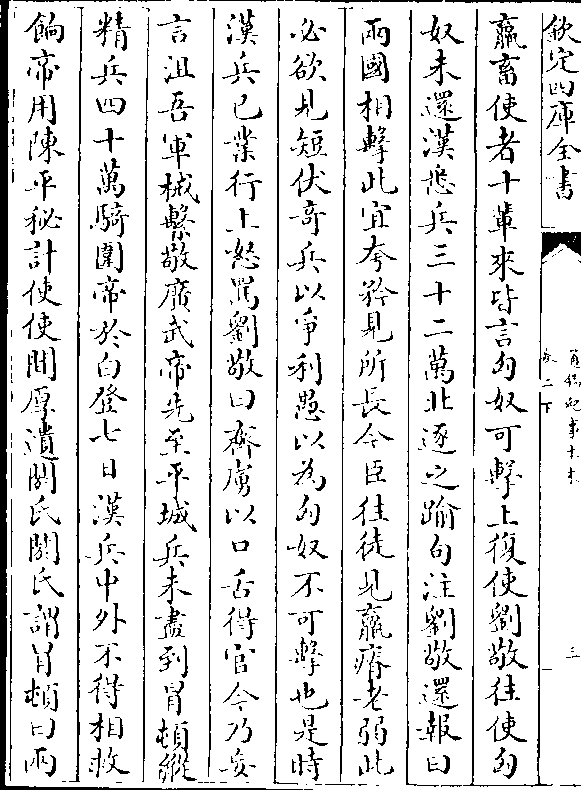 欽定四庫全書
卷二下
三
羸畜使者十輩來皆言匈奴可擊上復使劉敬往使匈
奴未還漢悉兵三十二萬北逐之踰句注劉敬還報曰
兩國相擊此宜夸矜見所長今臣往徒見羸瘠老弱此
必欲見短伏奇兵以爭利愚以為匈奴不可擊也是時
漢兵已業行上怒罵劉敬曰齊虜以口舌得官今乃妄
言沮吾軍械繫敬廣武帝先至平城兵未盡到冒頓縱
精兵四十萬騎圍帝於白登七日漢兵中外不得相救
餉帝用陳平秘計使使間厚遺閼氏閼氏謂冒頓曰兩